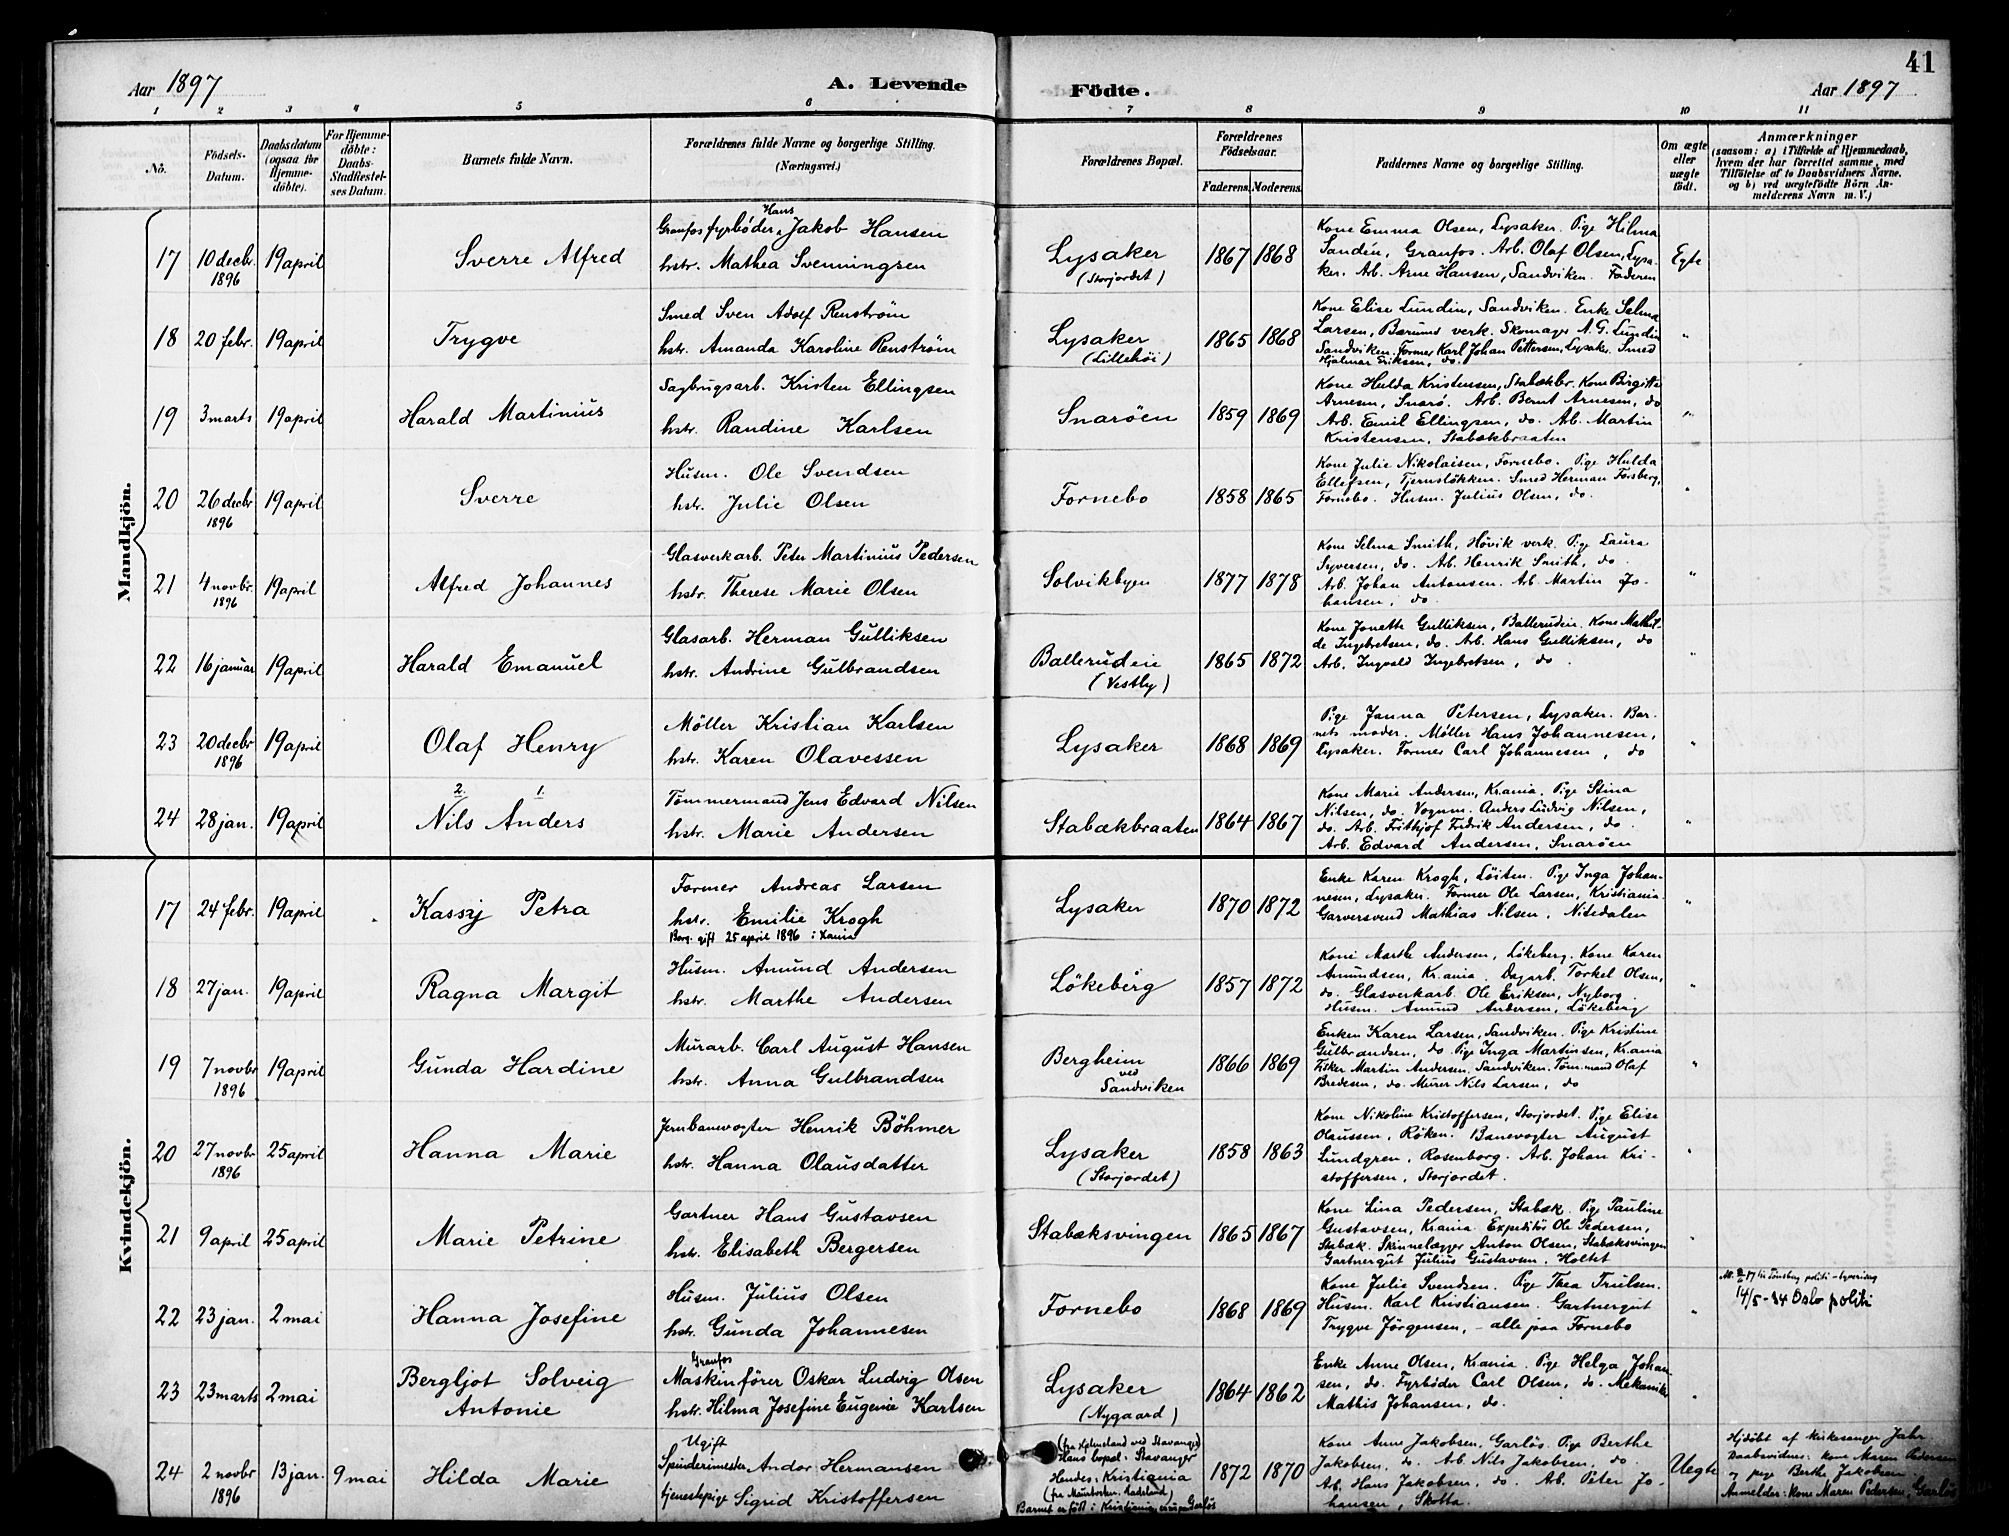 41
Aar 1897
A. Levende
Födte.
Aar 1897
1 2 3 4 5 6 7 8 9 10 11
No.
Födsels-
Datum.
Daabsdatum
(ogsaa for
Hjemme-
döbte).
For Hjemme-
döbte:
Daabs-
Stadfæstel-
ses Datum.
Barnets fulde Navn.
Forældrenes fulde Navne og borgerlige Stilling.
(Næringsvei.)
Forældrenes Bopæl.
Forældrenes
Födselsaar.
Faderens. Moderens.
Faddernes Navne og borgerlige Stilling.
Om ægte
eller
uægte
födt.
Anmærkninger
(saasom: a) i Tilfælde af Hjemmedaab,
hvem der har forrettet samme, med
Tilföielse af to Daabsvidners Navne.
og b) ved uægtefödte Börn An-
melderens Navn m. V.)
Mandkjön.
17 10 decbr. 1896 19 april Sverre Alfred
Granfos fyrbøder Hans Jakob Hansen
hstr. Mathea Svenningsen
Lysaker
(Storjordet)
1867 1868
Kone Emma Olsen, Lysaker. Pige Hilma
Sandén, Granfos. Arb. Olaf Olsen, Lysa-
ker. Ab. Arne Hansen, Sandviken. Faderen
Egte
18 20 febr. 19 april Trygve
Smed Sven Adolf Renström
hstr. Amanda Karoline Renström
Lysaker
(Lillehöi)
1865 1868
Kone Elise Lundin, Sandviken. Enke Selma
Larsen, Bærums verk. Skomager A. G. Lundin
Sandviken. Former Karl Johan Pettersen, Lysaker. Smed
Hjalmar Eriksen, do.
"
19 3 marts 19 april Harald Martinius
Sagbrugsarb. Kristen Ellingsen
hstr. Randine Karlsen
Snaröen
1859 1869
Kone Hulda Kristensen, Stabækbr. Kone Birgitte
Arnesen, Snarö. Arb. Bernt Arnesen, do
Arb. Emil Ellingsen, do. Ab. Martin
Kristensen, Stabækbraaten
"
20 26 decbr 1896 19 april Sverre
Husm. Ole Svendsen
hstr. Julie Olsen
Fornebo
1858 1865
Kone Julie Nikolaisen, Fornebo. Pige Hulda
Ellefsen, Tjernsløkken. Smed Herman Forsberg,
Fornebo. Husm. Julius Olsen, do.
"
21 4 novbr. 1896 19 april Alfred Johannes
Glasverkarb. Peter Martinius Pedersen
hstr. Therese Marie Olsen
Solvikbygn
1877 1878
Kone Selma Smith, Hövik verk. Pige Laura
Syversen, do. Arb. Henrik Smith, do.
Arb. Johan Antonsen. Ab. Martin Jo-
hansen, do
"
22 16 januar 19 april Harald Emanuel
Glasarb. Herman Gulliksen
hstr. Andrine Gulbrandsen
Ballerudeie
(Vestby)
1865 1872
Kone Jonette Gulliksen, Balleruden. Kone Mathil-
de Ingebretsen, do. Arb. Hans Gulliksen, do
Arb. Ingvald Ingebretsen, do.
"
23 20 decbr 1896 19 april Olaf Henry
Möller Kristian Karlsen
hstr. Karen Olavessen
Lysaker
1868 1869
Pige Janna Petersen, Lysaker. Bar-
nets moder. Møller Hans Johannesen,
Lysaker. Former Carl Johannesen, do
"
2. 1.
24 28 jan. 19 april Nils Anders
Tömmermand Jens Edvard Nilsen
hstr. Marie Andersen
Stabækbraaten
1864 1867
Kone Marie Andersen, Krania. Pige Stina
Nilsen, do. Vognm. Anders Ludvig Nilsen,
do. Arb. Frithjof Fredrik Andersen, do.
Arb. Edvard Andersen, Snaröen
"
Kvindekjön.
17 24 febr. 19 april Kassy Petra
Former Andreas Larsen
hstr. Emilie Krogh
Borg. gift 25 april 1896 i Xania
Lysaker
1870 1872
Enke Karen Krogh, Löiten. Pige Inga Johan-
nesen, Lysaker. Former Ole Larsen, Kristiania.
Garversvend Mathias Nilsen, Nitedalen
"
18 27 jan. 19 april Ragna Margit
Husm. Amund Andersen
hstr. Marthe Andersen
Lökeberg
1857 1872
Kone Marthe Andersen, Lökeberg. Kone Karen
Amundsen, Krania. Dagarb. Torkel Olsen,
do. Glasverkarb. Ole Eriksen, Nyborg.
Husm. Amund Andersen, Lökeberg
"
19 7 novbr 1896 19 april Gunda Hardine
Murarb. Carl August Hansen
hstr. Anna Gulbrandsen
Bergheim
ved
Sandviken
1866 1869
Enken Karen Larsen, Sandviken. Pige Kristine
Gulbrandsen, do. Pige Inga Martinsen, Krania
Fisker Martin Andersen, Sandviken. Tömmand Olaf
Bredesen, do. Murer Nils Larsen, do
"
20 27 novbr 1896 25 april Hanna Marie
Jernbanevogter Henrik Böhmer
hstr. Hanna Olausdatter
Lysaker
(Storjordet)
1858 1863
Kone Nikoline Kristoffersen, Storjordet. Pige Elise
Olaussen, Röken. Banevogter August
Lundgren, Rosenborg. Arb. Johan Kri-
stoffersen, Storjordet.
"
21 9 april 25 april Marie Petrine
Gartner Hans Gustavsen
hstr. Elisabeth Bergersen
Stabæksvingen
1865 1867
Kone Lina Pedersen, Stabæk. Pige Pauline
Gustavsen, Krania. Expeditör Ole Pedersen,
Stabæk. Skinnelægger Anton Olsen, Stabæksvingen
Gartnergut Julius Gustavsen, Holtet
"
22 23 jan. 2 mai Hanna Josefine
Husm. Julius Olsen
hstr. Gunda Johannesen
Fornebo
1868 1869
Kone Julie Svendsen. Pige Thea Trulsen.
Husm. Karl Kristiansen. Gartnergut
Trygve Jörgensen, - alle paa Fornebo
"
14/5-34 Oslo politi
23 23 marts 2 mai Bergljot Solveig
Antonie
Granfos
Maskinförer Oskar Ludvig Olsen
hstr. Hilma Josefine Eugenie Karlsen
Lysaker
(Nygaard)
1864 1862
Enke Anne Olsen, Krania. Pige Helga Johan-
sen, do. Fyrbøder Carl Olsen, do. Mekaniker
Mathis Johansen, do.
"
24 2 novbr 1896 13 jan. 9 mai Hilda Marie
Ugift
Spinderimester Andor Hermansen
tjenestepige Sigrid Kristoffersen
Hans bopæl: Stavanger
Hendes: Kristiania
1872 1870
Kone Anne Jakobsen, Garlös. Pige Berthe
Jakobsen, do. Ab. Nils Jakobsen, do
Ab. Hans Jakobsen, do. Ab. Peter Jo-
hansen, Skotta.
Uegte
Hjdöbt af kirkesanger Jahr
Daabsvidner: kone Maren Pedersen
og pige Berthe Jakobsen
Anmelder: kone Maren Pedersen, Garlös